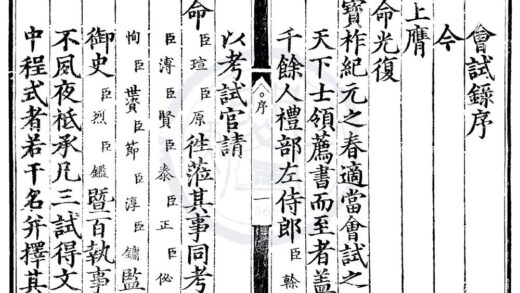 會試錄序
今
上膺
命光復
寶祚紀元之春適當會試之
天下士領薦書而至者蓋
千餘人禮部左侍郎臣榦
序
一
以考試官請
命臣瑄臣原徃蒞其事同考
臣溥臣賢臣泰臣正臣佖
恂臣世資臣節臣淳臣鏞監
御史臣烈臣鑑暨百執事
不夙夜祗承凡三試得文
中程式者若干名弁擇其